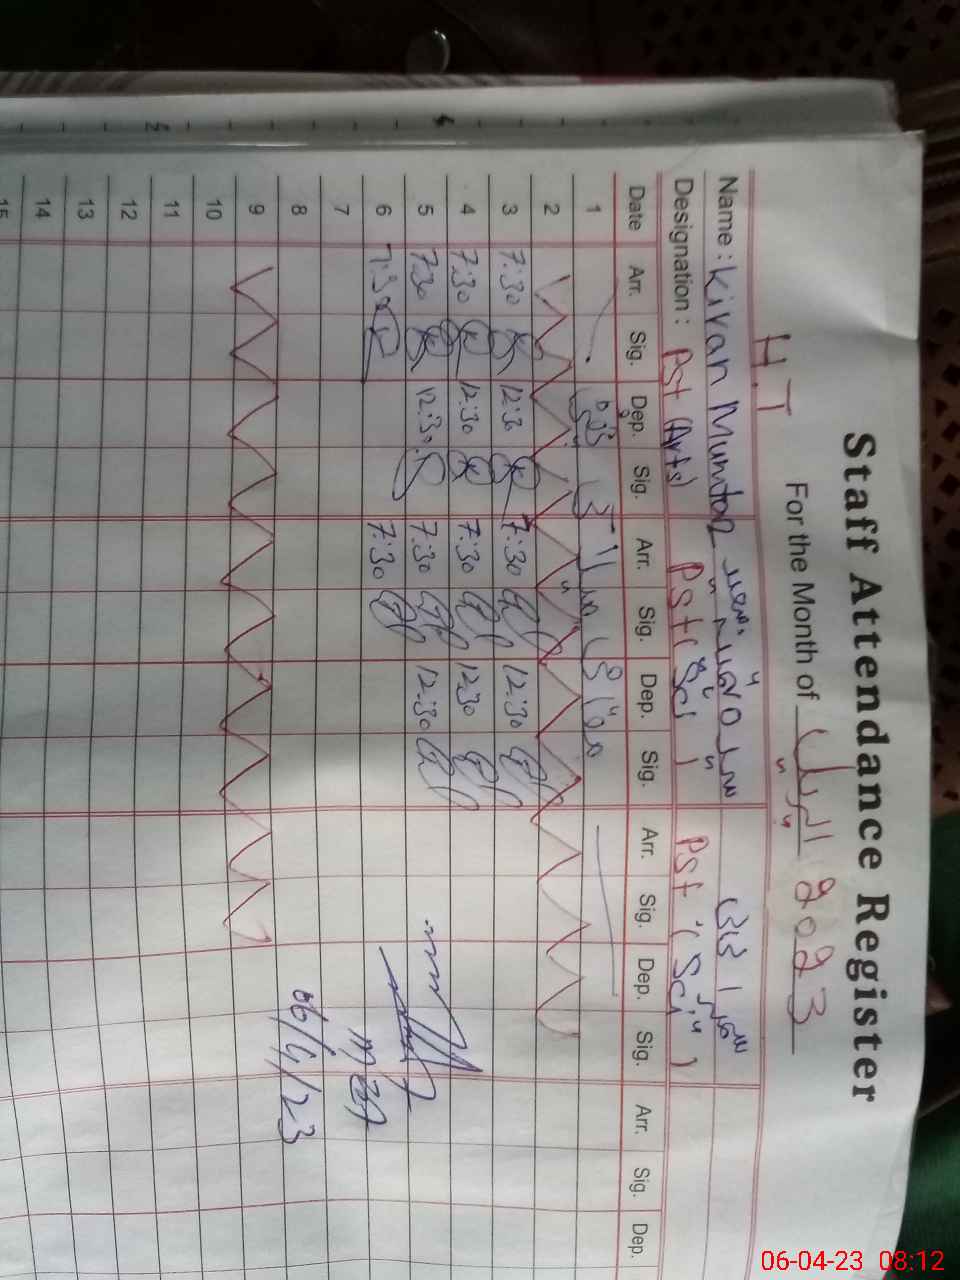 Staff Attendance Register
H.T
For the Month of اپریل 2023
Name : Kiran Mumtaz
Designation : Pst (Arts) Pst ( Sci ) Pst ( Sci )
Date Arr. Sig. Dep. Sig. Arr. Sig. Dep. Sig. Arr. Sig. Dep. Sig. Arr. Sig. Dep.
1
2
3 7:30 12:30 7:30 12:30
4 7:30 12:30 7:30 12:30
5 7:30 12:30 7:30 12:30
6 7:30 7:30
7
8 06/4/23
9
10
11
12
13
14
15
06-04-23 08:12